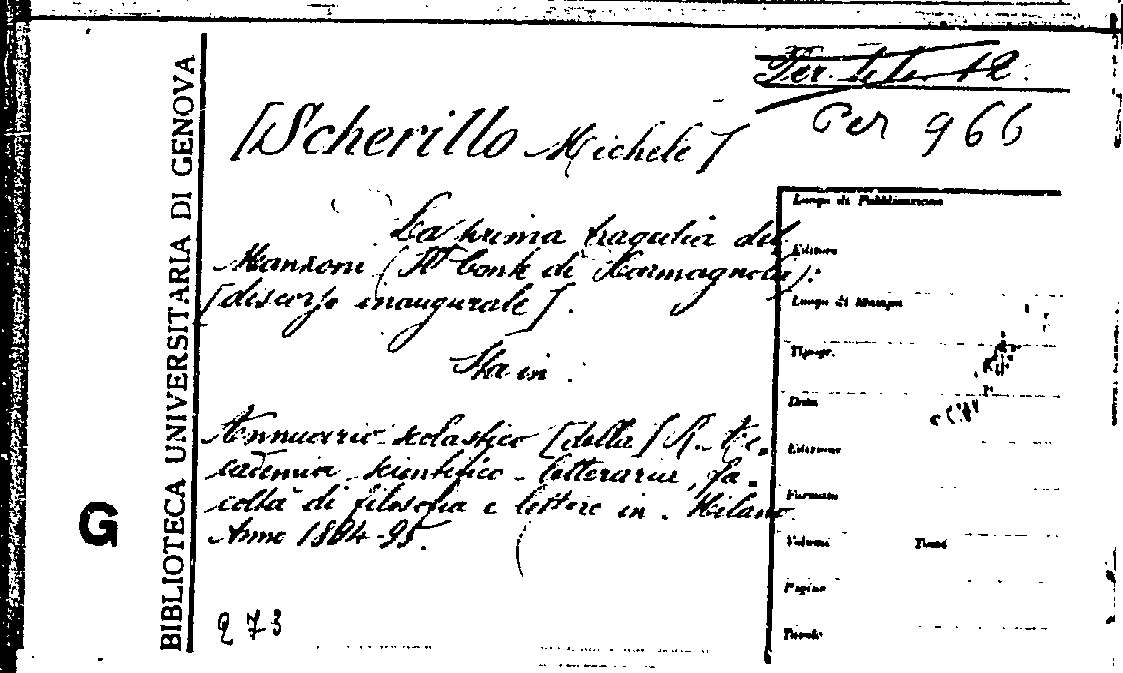 BIBLIOTECA UNIVERSITARIA DI GENOVA
G
Per 966
[Scherillo Michele]
La prima tragedia del
Manzoni (Il Conte di Karmagnola):
[discorso inaugurale].
Sta in
Annuario scolastico [della] R. Ac=
cademia scientifico-letteraria, fa=
coltà di filosofia e lettere in Milano.
Anno 1894-95.
273
Luogo di Pubblicazione
Editore
Luogo di Stampa
Tipogr.
Data
Edizione
Formato
Volumi Tomi
Pagine
Tavole